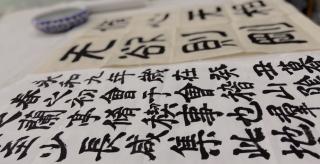 无欲則剛
永和九年歲在癸丑暮
春之初會于會稽山陰
蘭亭脩禊事也羣
至少長咸集此地